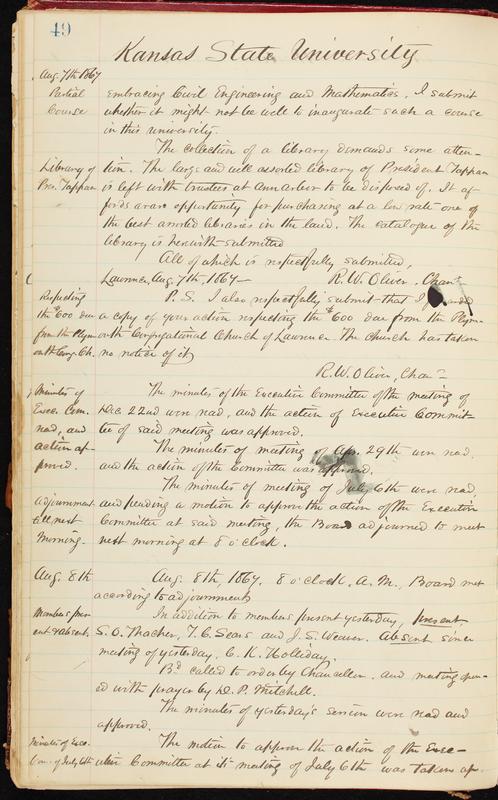 49
Kansas State University
Aug. 7th 1867
Partial
Course
embracing Civil Engineering and Mathematics. I submit
whether it might not be well to inaugurate such a course
in this university.
The collection of a library demands some atten-
Library of
Pres. Tappan
tion. The large and well assorted library of President Tappan
is left with trustees at Ann arbor to be disposed of. It af-
fords a rare opportunity for purchasing at a low rate one of
the best assorted libraries in the land. The catalogue of the
library is herewith submitted
All of which is respectfully submitted,
Lawrence, Aug. 7th, 1867— R. W. Oliver. Chanr
Respecting
the 600 due
from the Plym-
outh Cong. Ch.
P.S. I also respectfully submit that I handed
a copy of your action respecting the $600 due from the Plym-
outh Congregational Church of Lawrence. The Church has taken
no notice of it,
R. W. Oliver, Chanr
Minutes of
Exec. Com.
read, and
action ap-
proved.
The minutes of the Executive Committee of the meeting of
Dec. 22nd were read, and the action of Executive Commit-
tee of said meeting was approved.
The minutes of meeting of Apr. 29th were read,
and the action of the Committee was approved.
The minutes of meeting of July 6th were read,
Adjournment
till next
Morning.
and pending a motion to approve the action of the Executive
Committee at said meeting, the Board adjourned to meet
next morning at 8 o'clock.
Aug. 8th
Aug. 8th, 1867. 8 o'clock, A. M., Board met
according to adjournment
Members pres-
ent & absent.
In addition to members present yesterday, present
S. O. Thacher, T. C. Sears and J. S. Weaver. Absent since
meeting of yesterday, C. K. Holliday.
Bd called to order by Chancellor. and meeting open-
ed with prayer by D. P. Mitchell.
The minutes of yesterday's session were read and
approved.
Minutes of Exec.
Com. of July 6th
The motion to approve the action of the Exec-
utive Committee at its meeting of July 6th was taken up